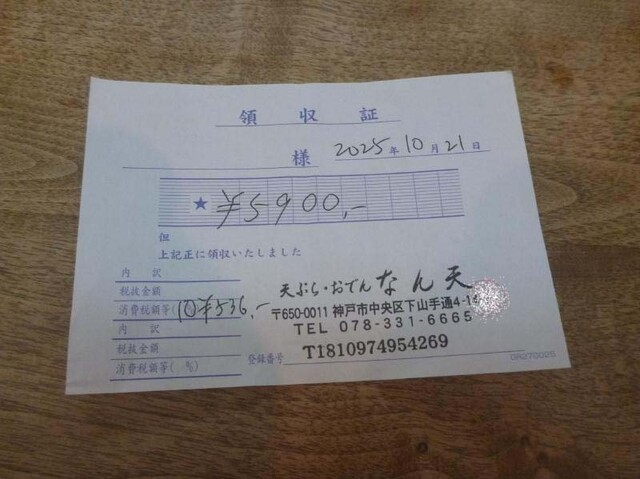 領収証
様 2025年10月21日
★ ¥5900,-
但
上記正に領収いたしました
内訳
税抜金額
消費税額等(10 ¥536,-
内訳
税抜金額
消費税額等( %)
天ぷら・おでん なん天
〒650-0011 神戸市中央区下山手通4-14
TEL 078-331-6665
登録番号 T1810974954269
OR270025